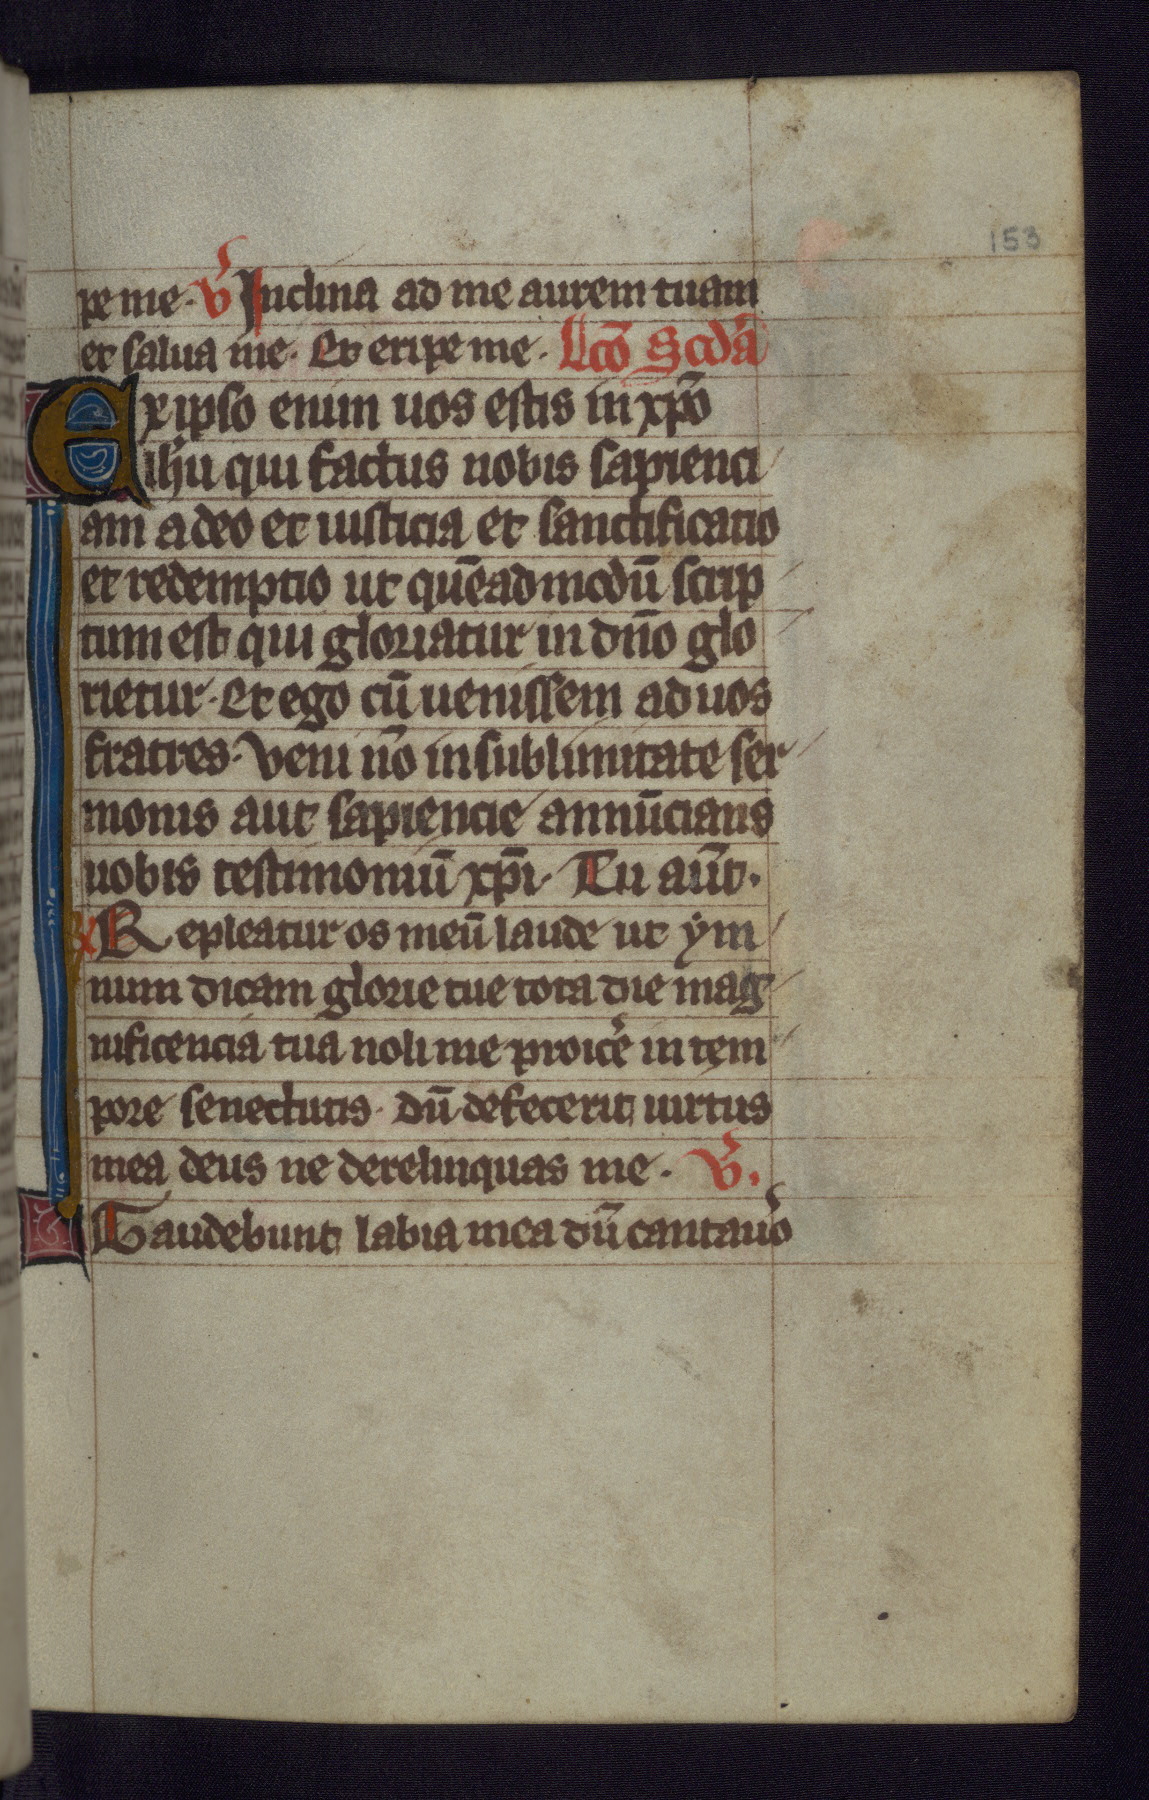 153
pe me. V̄ Inclina ad me aurem tuam
et salua me. Et eripe me. Lc̄o Sc̄da
Ex ipso enim uos estis in xp̄o
ih̄u qui factus nobis sapienci
am a deo et iusticia et sanctificatio
et redemptio ut quēadmodū scrip
tum est qui gloriatur in dn̄o glo
rietur. Et ego cū uenissem ad uos
fratres. Veni nō in sublimitate ser
monis aut sapiencie annūcians
uobis testimoniū xp̄i. Tu aūt.
R Repleatur os meū laude ut ym
num dicam glorie tue tota die mag
nificencia tua noli me proicē in tem
pore senectutis. dū defecerit uirtus
mea deus ne derelinquas me. V̄.
Gaudebunt labia mea dū cantau᾽o